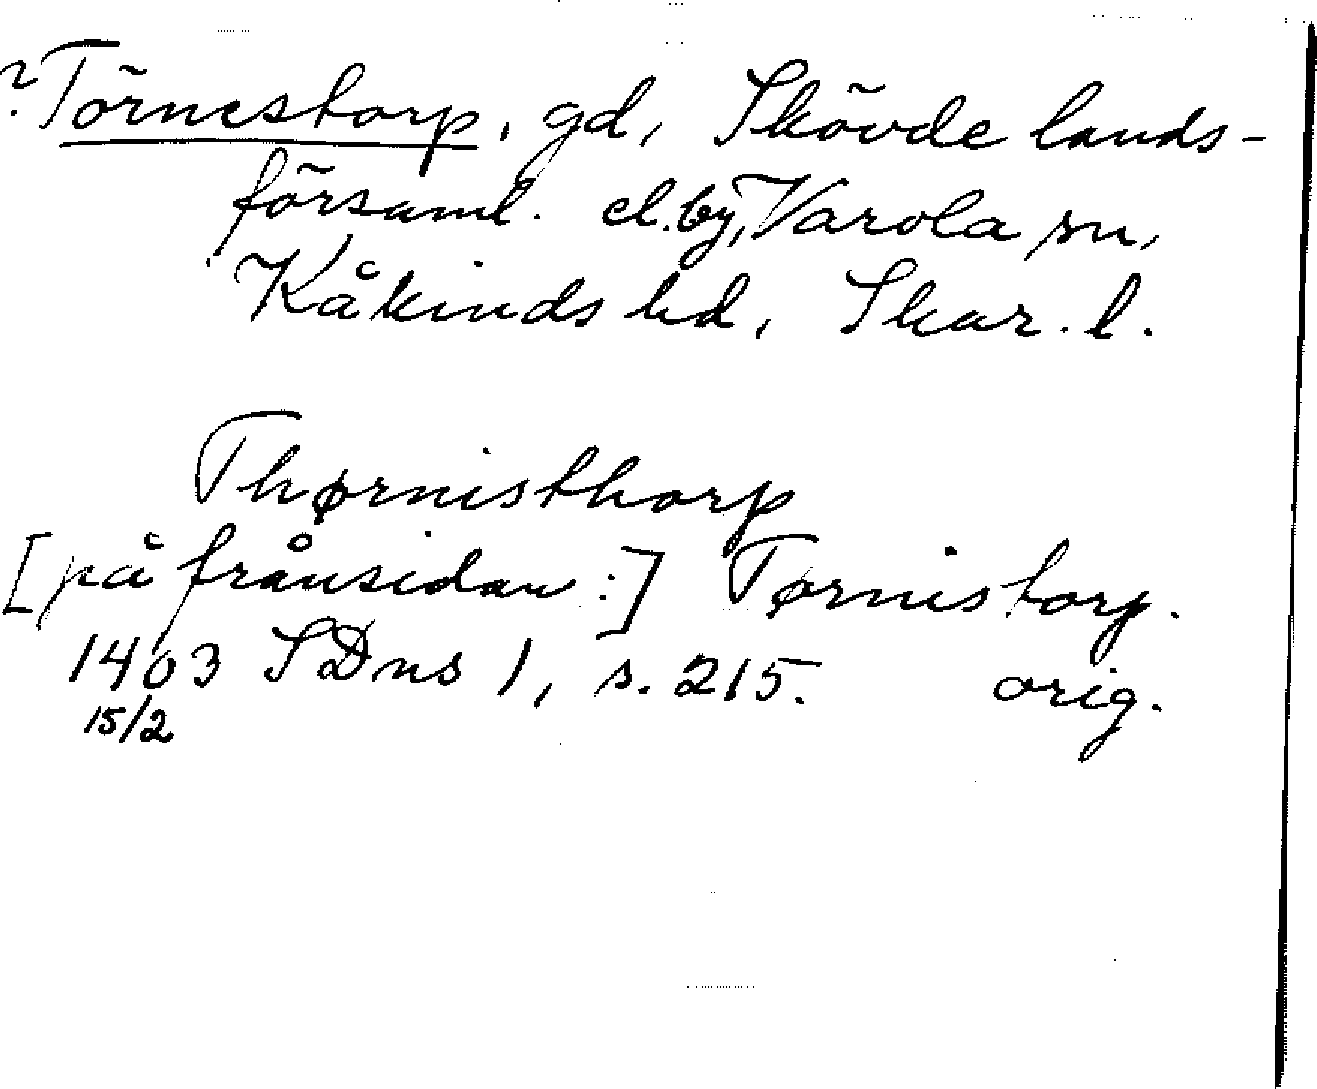 ? Törnestorp, gd, Skövde lands-
församl. el. by, Varola sn,
Kåkinds hd, Skar. l.
Thørnisthorp
[på frånsidan:] Tørnistorp.
1403 SDns 1, s. 215. orig.
15/2